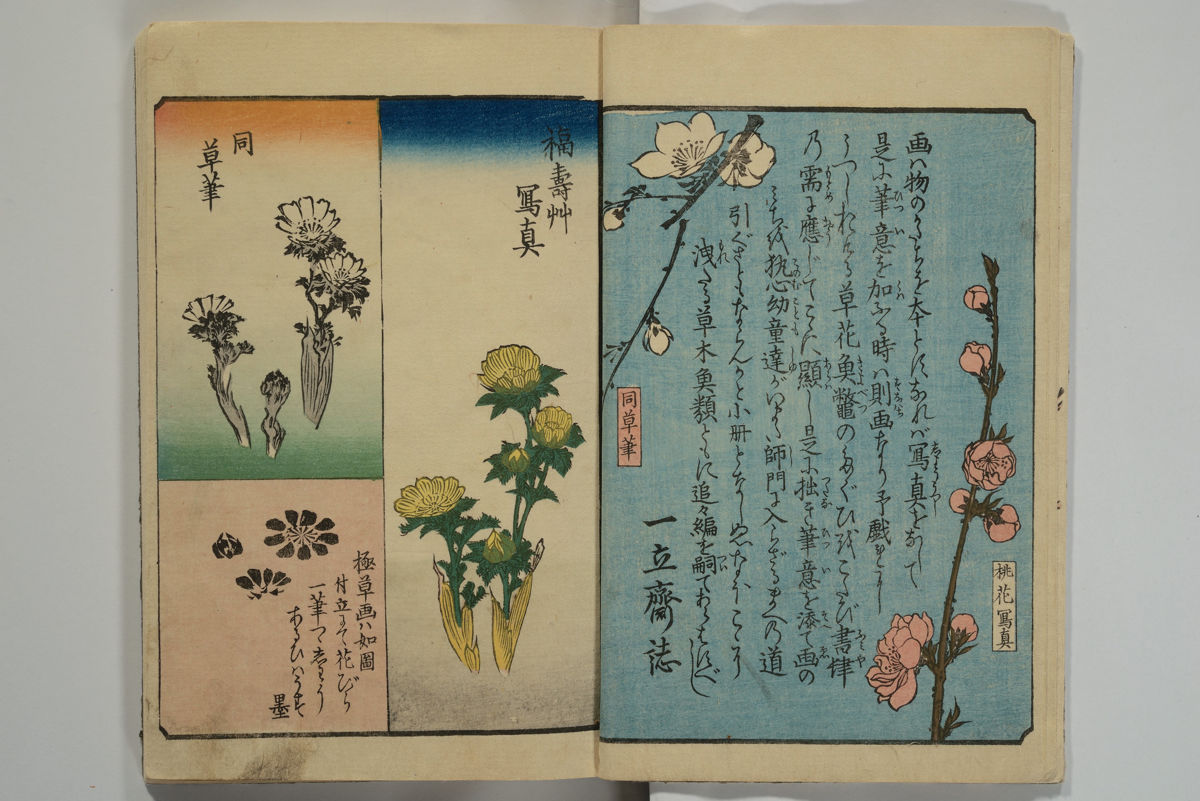 桃花寫真
画ハ物のかたちを本とす なれバ寫真をなして
是に筆意を加ふる時ハ則画なり 予戯れに
うつしおける草花魚鼈のたぐひを こたび書肆
乃需に應じて こゝに顕し 是に拙き筆意を添て画の
みちを執心幼童達がいまだ師門に入らざるまへの道
引ぐさともならんかと小册となしぬ なほこゝに
洩たる草木魚類ともに追々編を嗣てあらはすべし
一立齋誌
同草筆
福壽艸
寫真
同
草筆
極草画ハ如圖
付立にて花びら
一筆づゝ
あるひハうす
墨